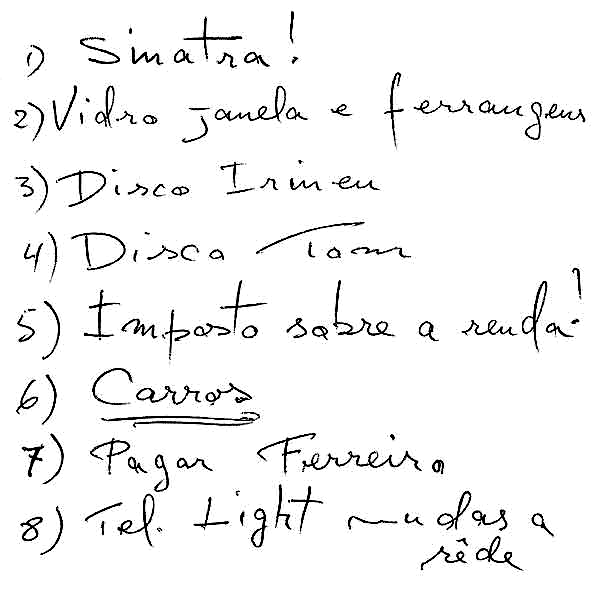 1) Sinatra!
2) Vidro janela e ferrangens
3) Disco Irineu
4) Disco Tom
5) Imposto sobre a renda!
6) Carros
7) Pagar Ferreiro
8) Tel. Light mudas a
rêde